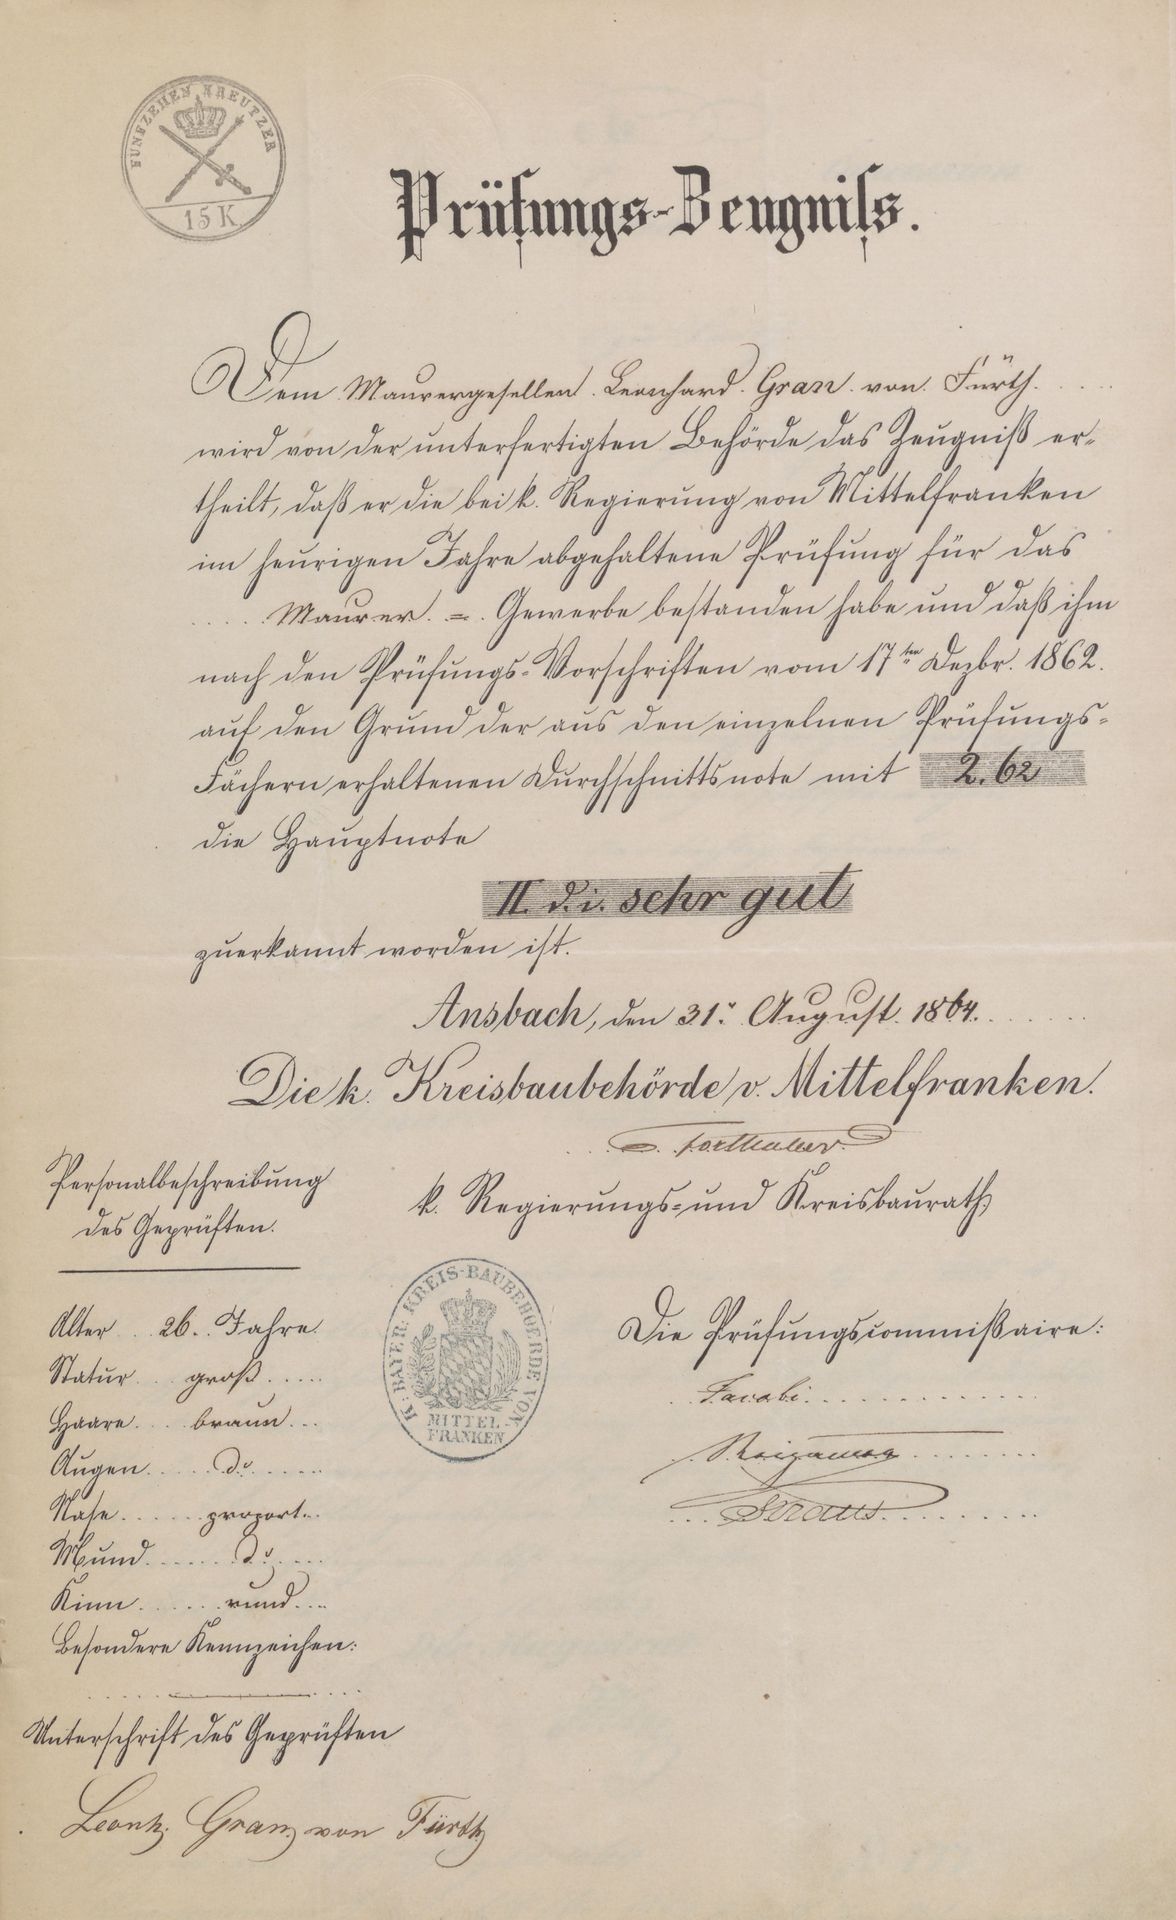 FÜNFZEHEN KREUTZER
15 K
Prüfungs-Zeugniſs.
Dem Maurergesellen Leonhard Gran von Fürth
wird von der unterfertigten Behörde das Zeugniß er-
theilt, daß er die bei k. Regierung von Mittelfranken
im heurigen Jahre abgehaltene Prüfung für das
Maurer = Gewerbe bestanden habe und daß ihm
nach den Prüfungs-Vorschriften vom 17ten Dezbr. 1862.
auf den Grund der aus den einzelnen Prüfungs-
Fächern erhaltenen Durchschnittsnote mit 2.62
die Hauptnote
II. d. i. sehr gut
zuerkannt worden ist.
Ansbach, den 31. August 1864.
Die k. Kreisbaubehörde v. Mittelfranken.
k. Regierungs- und Kreisbaurath
Personalbeschreibung
des Geprüften.
Alter 26. Jahre.
Statur groß
Haare braun
Augen do
Nase proport.
Mund do
Kinn rund
Besondere Kennzeichen:
Unterschrift des Geprüften
Leonh. Gran von Fürth
K. BAYER. KREIS-BAUBEHOERDE VON
MITTEL-
FRANKEN
Die Prüfungscommißaire:
Jacobi
Straus